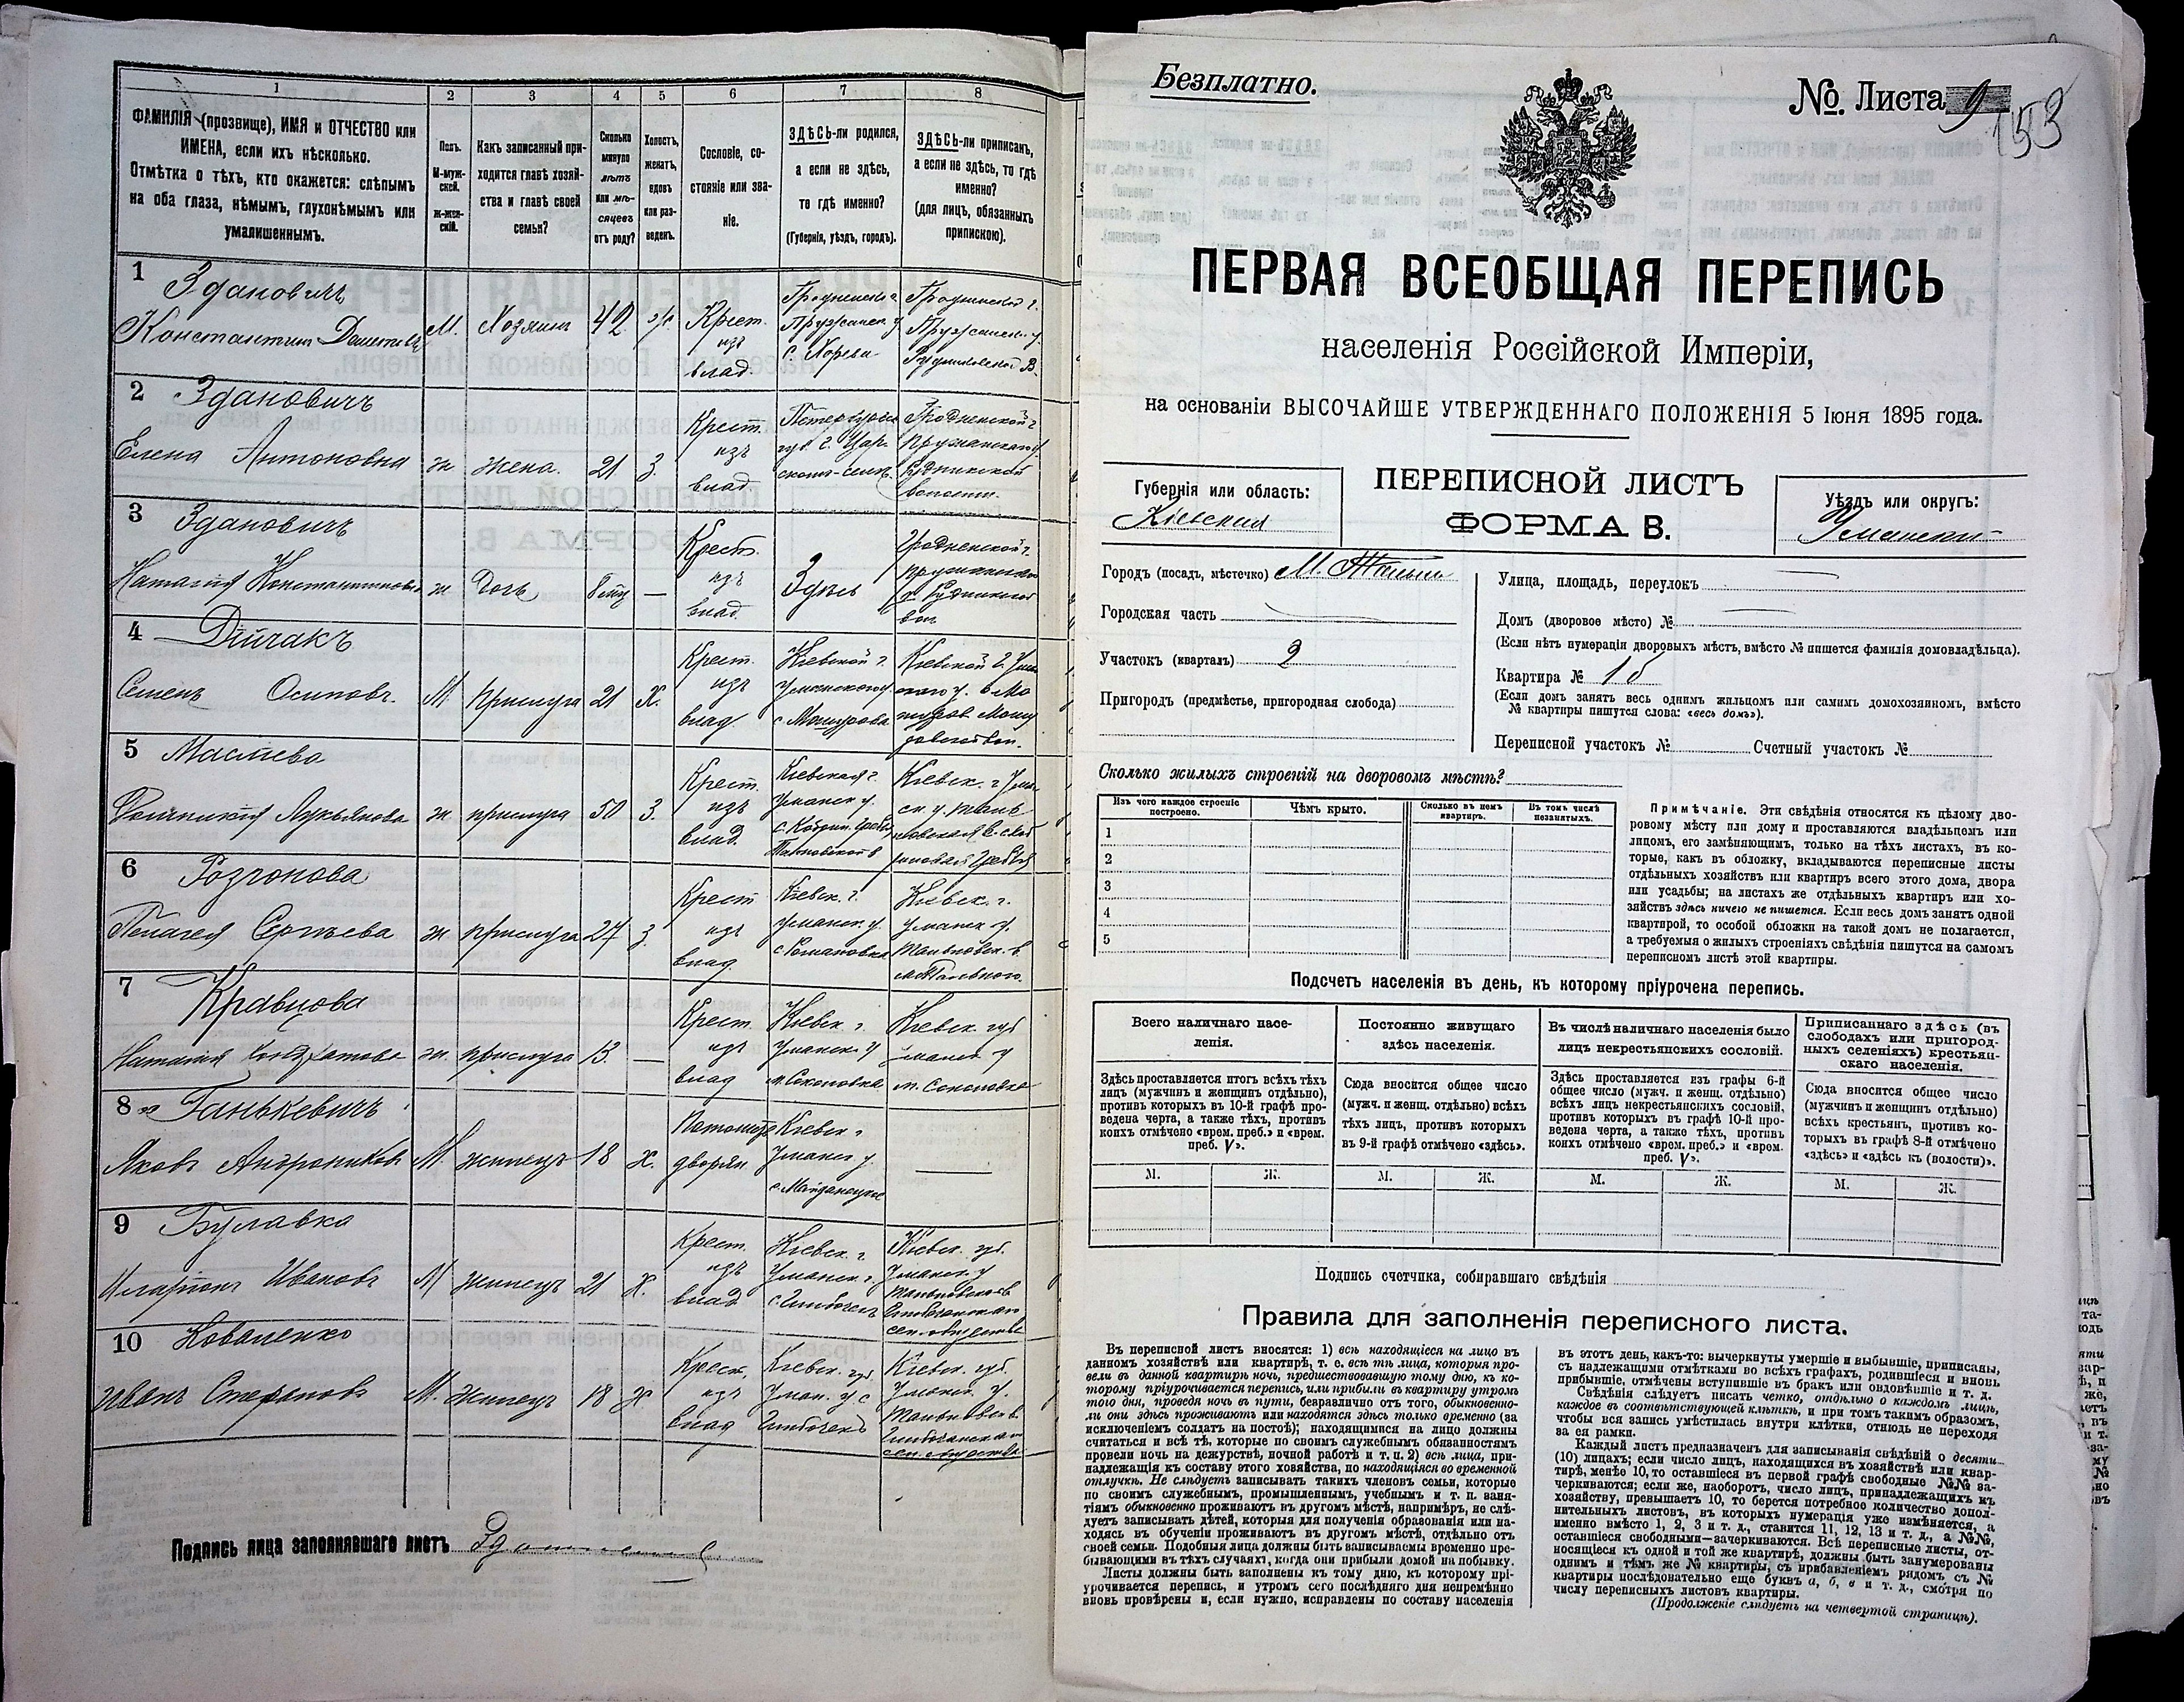 1
2
3
4
5
6
7
8
ФАМИЛІЯ (прозвище), ИМЯ и ОТЧЕСТВО или
ИМЕНА, если ихъ нѣсколько.
Отмѣтка о тѣхъ, кто окажется: слѣпымъ
на оба глаза, нѣмымъ, глухонѣмымъ или
умалишеннымъ.
Полъ.
М-муж-
ской.
Ж-жен-
скій.
Какъ записанный при-
ходится главѣ хозяй-
ства и главѣ своей
семьи?
Сколько
минуло
лѣтъ
или мѣ-
сяцевъ
отъ роду?
Холостъ,
женатъ,
вдовъ
или раз-
веденъ.
Сословіе, со-
стояніе или зва-
ніе.
ЗДѢСЬ-ли родился,
а если не здѣсь,
то гдѣ именно?
(Губернія, уѣздъ, городъ).
ЗДѢСЬ-ли приписанъ,
а если не здѣсь, то гдѣ
именно?
(для лицъ, обязанныхъ
припискою).
1 Здановичъ
Константинъ
М.
Хозяинъ
42
Крест.
изъ
влад.
Пружанск. у
2 Здановичъ
Елена Антоновна
ж
жена.
21
З.
Крест.
изъ
влад
Гродненской г.
3 Здановичъ
Наталія Константиновна
ж
Дочь
—
Крест.
изъ
влад.
Здѣсь
Гродненской г.
4 Дійчакъ
Семенъ Осиповъ.
М.
прислуга
21
Х.
Крест.
изъ
влад.
Кіевской г.
Уманскаго у.
5
Лукьянова
ж
прислуга
50
З.
Крест.
изъ
влад.
Кіевская г.
Уманск у.
6 Розгонова
Пелагея Сергѣева
ж
прислуга
27
З.
Крест
изъ
влад.
Кіевск. г.
Уманск. у.
с Романовка
Кіевск. г.
Уманск у.
7 Кравцова
Наталія Кондратова
ж.
прислуга
13.
—
Крест.
изъ
влад
Кіевск. г.
Уманск у
м. Соколовка
Кіевск. губ
Уманск у
м. Соколовка
8 Ганькевичъ
Яковъ Андрониковъ
М.
жилецъ
18
Х.
дворян.
Кіевск г
Уманск у.
с. Майданецкое
—
9 Булавка
Иларіонъ Ивановъ
М
жилецъ
21
Х.
Крест.
изъ
влад
Кіевск. г
Кіевск. губ.
Уманск. у
10 Коваленко
Иванъ Стефановъ
М.
жилецъ
18
Х
Крест.
изъ
влад
Кіевск. губ
Уман. у с
Кіевск. губ.
Уманск. у.
Подпись лица заполнявшаго листъ
Безплатно.
№. Листа 9
153
ПЕРВАЯ ВСЕОБЩАЯ ПЕРЕПИСЬ
населенія Россійской Имперіи,
на основаніи ВЫСОЧАЙШЕ УТВЕРЖДЕННАГО ПОЛОЖЕНІЯ 5 Іюня 1895 года.
Губернія или область:
Кіевская
ПЕРЕПИСНОЙ ЛИСТЪ
ФОРМА В.
Уѣздъ или округъ:
Уманскій
Городъ (посадъ, мѣстечко) М.
Городская часть
Участокъ (кварталъ) 2
Пригородъ (предмѣстье, пригородная слобода)
Улица, площадь, переулокъ
Домъ (дворовое мѣсто) №
(Если нѣтъ нумераціи дворовыхъ мѣстъ, вмѣсто № пишется фамилія домовладѣльца).
Квартира № 1б
(Если домъ занятъ весь однимъ жильцомъ или самимъ домохозяиномъ, вмѣсто
№ квартиры пишутся слова: «весь домъ»).
Переписной участокъ № Счетный участокъ №
Сколько жилыхъ строеній на дворовомъ мѣстѣ?
Изъ чего каждое строеніе
построено.
Чѣмъ крыто.
Сколько въ немъ
квартиръ.
Въ томъ числѣ
незанятыхъ.
1
2
3
4
5
Примѣчаніе. Эти свѣдѣнія относятся къ цѣлому дво-
ровому мѣсту или дому и проставляются владѣльцемъ или
лицомъ, его замѣняющимъ, только на тѣхъ листахъ, въ ко-
торые, какъ въ обложку, вкладываются переписные листы
отдѣльныхъ хозяйствъ или квартиръ всего этого дома, двора
или усадьбы; на листахъ же отдѣльныхъ квартиръ или хо-
зяйствъ здѣсь ничего не пишется. Если весь домъ занятъ одной
квартирой, то особой обложки на такой домъ не полагается,
а требуемыя о жилыхъ строеніяхъ свѣдѣнія пишутся на самомъ
переписномъ листѣ этой квартиры.
Подсчетъ населенія въ день, къ которому пріурочена перепись.
Всего наличнаго насе-
ленія.
Постоянно живущаго
здѣсь населенія.
Въ числѣ наличнаго населенія было
лицъ некрестьянскихъ сословій.
Приписаннаго здѣсь (въ
слободахъ или пригород-
ныхъ селеніяхъ) крестьян-
скаго населенія.
Здѣсь проставляется итогъ всѣхъ тѣхъ
лицъ (мужчинъ и женщинъ отдѣльно),
противъ которыхъ въ 10-й графѣ про-
ведена черта, а также тѣхъ, противъ
коихъ отмѣчено «врем. преб.» и «врем.
преб. V».
Сюда вносится общее число
(мужч. и женщ. отдѣльно) всѣхъ
тѣхъ лицъ, противъ которыхъ
въ 9-й графѣ отмѣчено «здѣсь».
Здѣсь проставляется изъ графы 6-й
общее число (мужч. и женщ. отдѣльно)
всѣхъ лицъ некрестьянскихъ сословій,
противъ которыхъ въ графѣ 10-й про-
ведена черта, а также тѣхъ, противъ
коихъ отмѣчено «врем. преб.» и «врем.
преб. V».
Сюда вносится общее число
(мужчинъ и женщинъ отдѣльно)
всѣхъ крестьянъ, противъ ко-
торыхъ въ графѣ 8-й отмѣчено
«здѣсь» и «здѣсь къ (волости)».
М. Ж. М. Ж. М. Ж. М. Ж.
Подпись счетчика, собиравшаго свѣдѣнія
Правила для заполненія переписного листа.
Въ переписной листъ вносятся: 1) всѣ находящіеся на лицо въ
данномъ хозяйствѣ или квартирѣ, т. е. всѣ тѣ лица, которыя про-
вели въ данной квартирѣ ночь, предшествовавшую тому дню, къ ко-
торому пріурочивается перепись, или прибыли въ квартиру утромъ
того дня, проведя ночь въ пути, безразлично отъ того, обыкновенно-
ли они здѣсь проживаютъ или находятся здѣсь только временно (за
исключеніемъ солдатъ на постоѣ); находящимися на лицо должны
считаться и всѣ тѣ, которые по своимъ служебнымъ обязанностямъ
провели ночь на дежурствѣ, ночной работѣ и т. п. 2) всѣ лица, при-
надлежащія къ составу этого хозяйства, но находящіяся во временной
отлучкѣ. Не слѣдуетъ записывать такихъ членовъ семьи, которые
по своимъ служебнымъ, промышленнымъ, учебнымъ и т. п. заня-
тіямъ обыкновенно проживаютъ въ другомъ мѣстѣ, напримѣръ, не слѣ-
дуетъ записывать дѣтей, которыя для полученія образованія или на-
ходясь въ обученіи проживаютъ въ другомъ мѣстѣ, отдѣльно отъ
своей семьи. Подобныя лица должны быть записываемы временно пре-
бывающими въ тѣхъ случаяхъ, когда они прибыли домой на побывку.
Листы должны быть заполнены къ тому дню, къ которому прі-
урочивается перепись, и утромъ сего послѣдняго дня непремѣнно
вновь провѣрены и, если нужно, исправлены по составу населенія
въ этотъ день, какъ-то: вычеркнуты умершіе и выбывшіе, приписаны,
съ надлежащими отмѣтками во всѣхъ графахъ, родившіеся и вновь
прибывшіе, отмѣчены вступившіе въ бракъ или овдовѣвшіе и т. д.
Свѣдѣнія слѣдуетъ писать четко, отдѣльно о каждомъ лицѣ,
каждое въ соотвѣтствующей клѣткѣ, и при томъ такимъ образомъ,
чтобы вся запись умѣстилась внутри клѣтки, отнюдь не переходя
за ея рамки.
Каждый листъ предназначенъ для записыванія свѣдѣній о десяти
(10) лицахъ; если число лицъ, находящихся въ хозяйствѣ или квар-
тирѣ, менѣе 10, то оставшіеся въ первой графѣ свободные №№ за-
черкиваются; если же, наоборотъ, число лицъ, принадлежащихъ къ
хозяйству, превышаетъ 10, то берется потребное количество допол-
нительныхъ листовъ, въ которыхъ нумерація уже измѣняется, а
именно вмѣсто 1, 2, 3 и т. д., ставится 11, 12, 13 и т. д., а №№,
оставшіеся свободными—зачеркиваются. Всѣ переписные листы, от-
носящіеся къ одной и той же квартирѣ, должны быть занумерованы
однимъ и тѣмъ же № квартиры, съ прибавленіемъ рядомъ съ №
квартиры послѣдовательно еще буквъ а, б, в и т. д., смотря по
числу переписныхъ листовъ квартиры.
(Продолженіе слѣдуетъ на четвертой страницѣ).